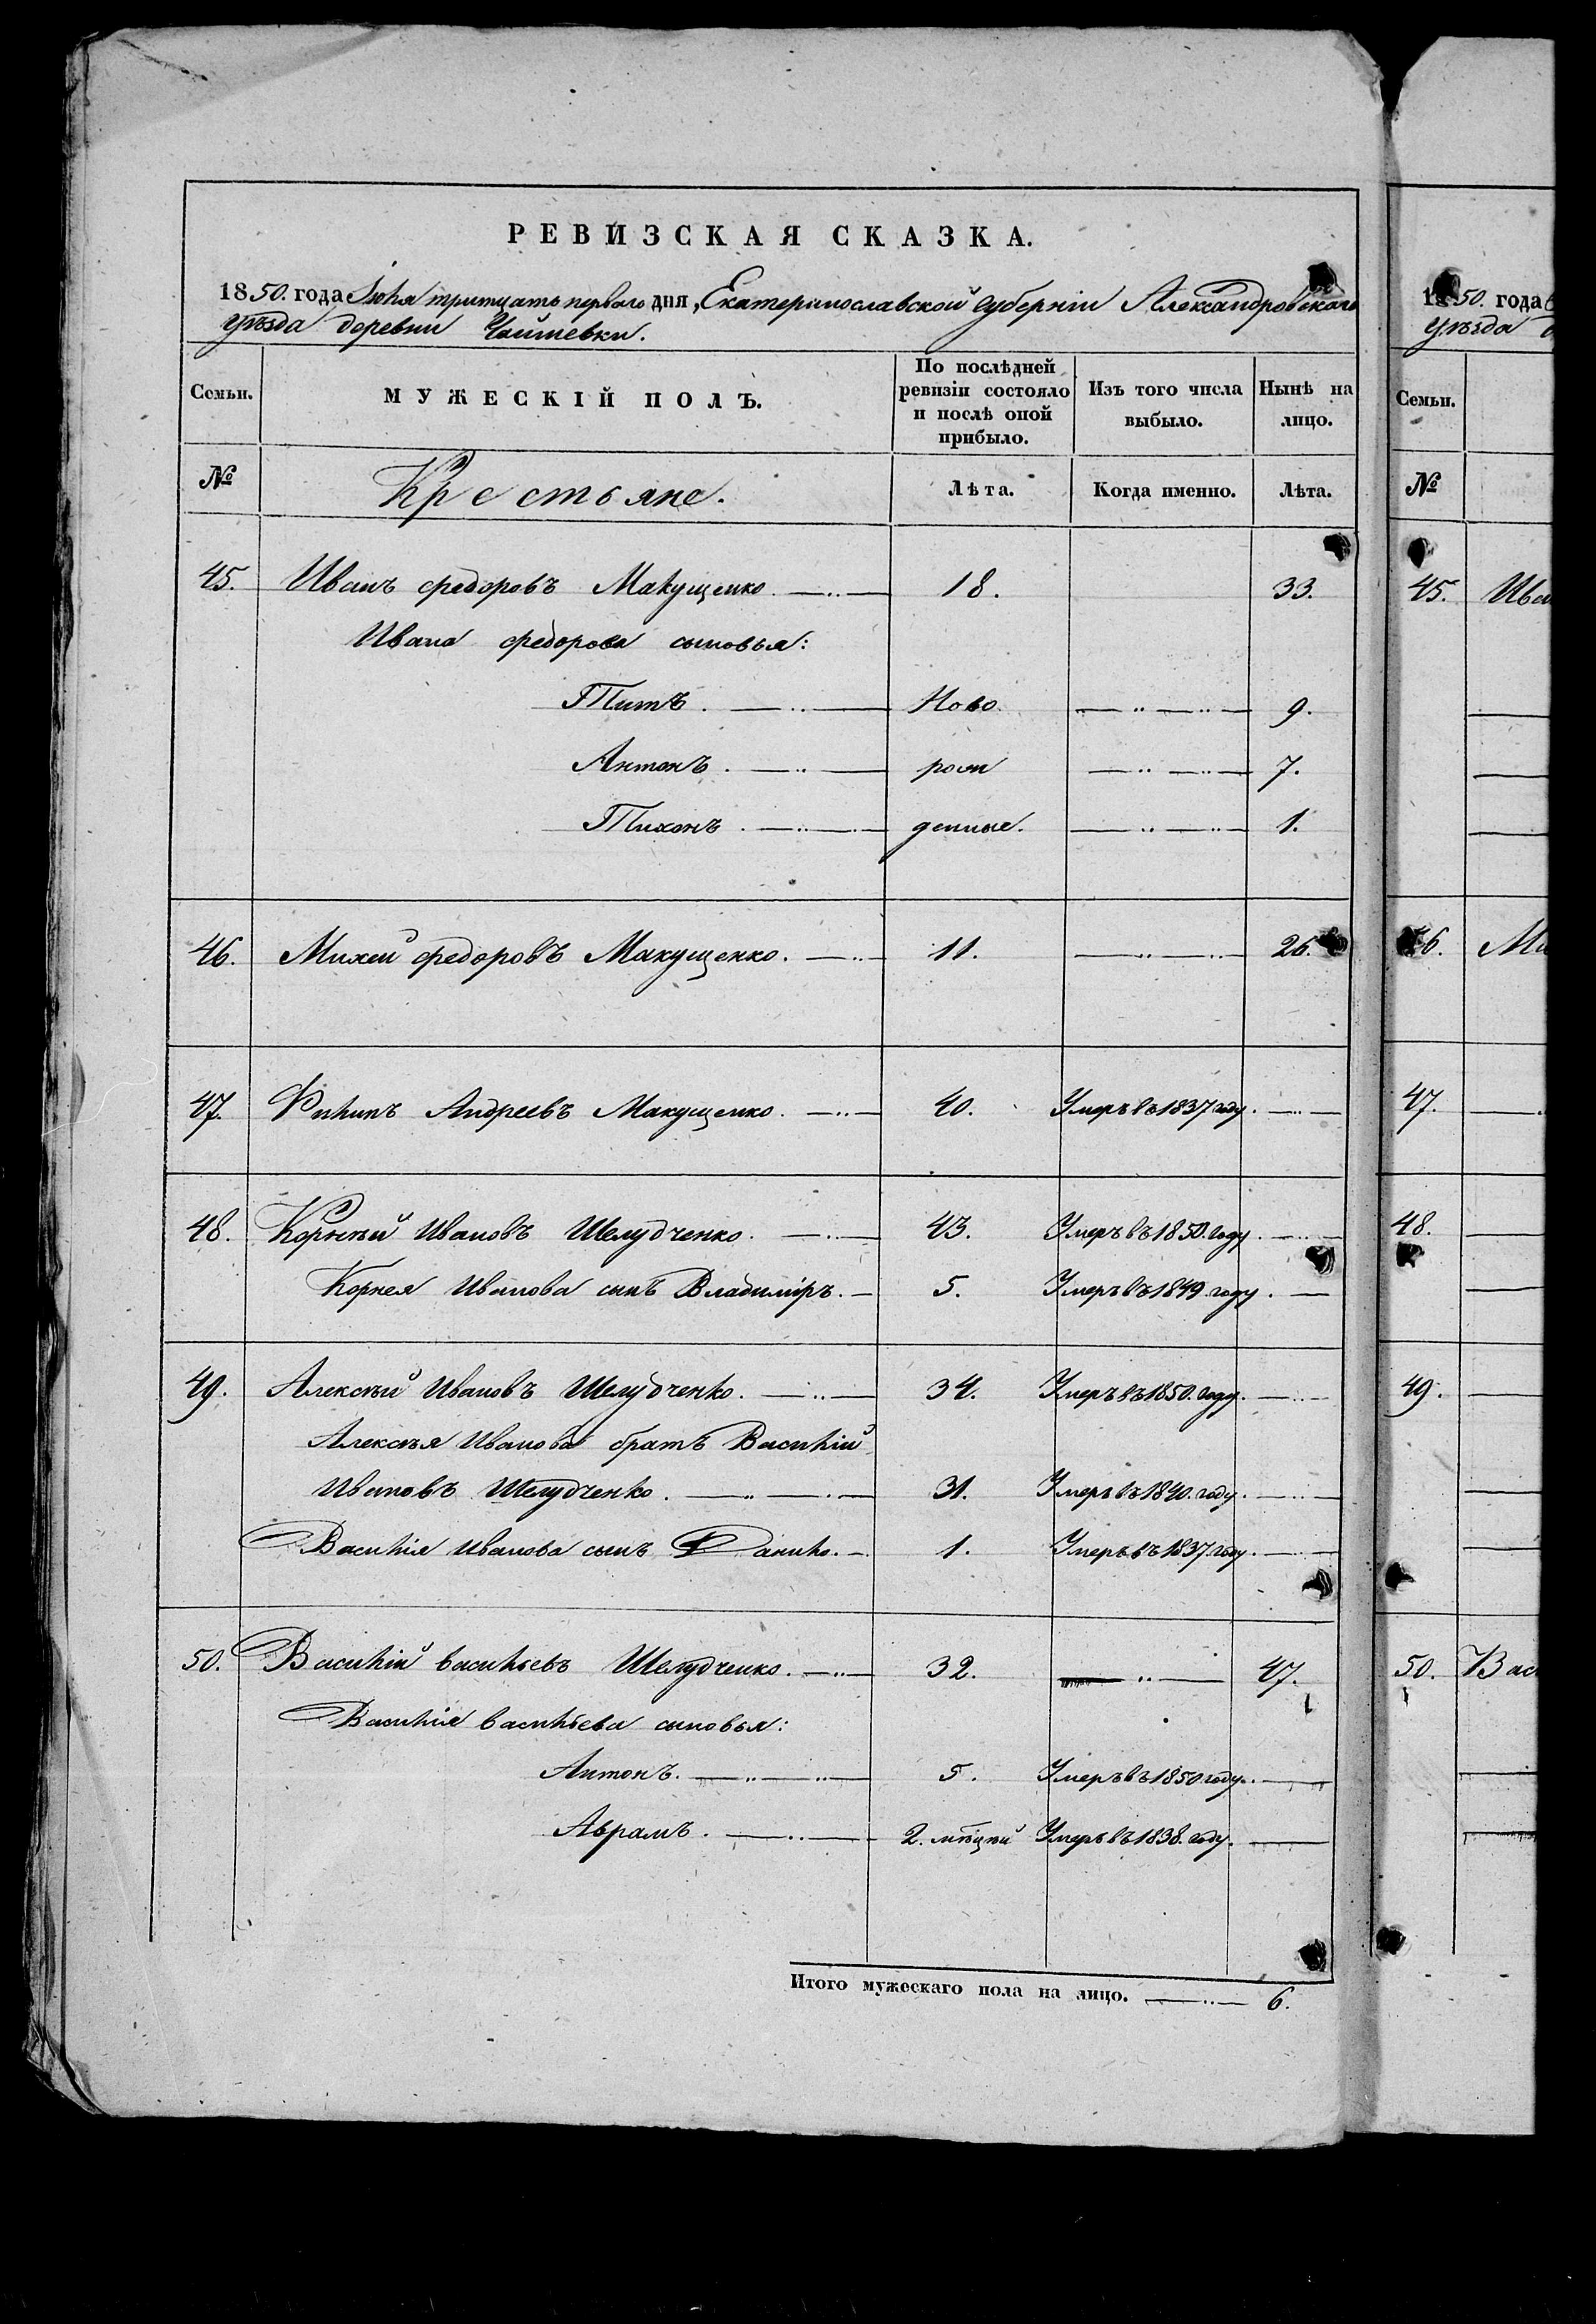 РЕВИЗСКАЯ СКАЗКА.
1850. года Іюля тритцать перваго дня, Екатеринославской губерніи Александровскаго
уѣзда деревни
Семьи.
МУЖЕСКІЙ ПОЛЪ.
По послѣдней ревизіи состояло и послѣ оной прибыло.
Изъ того числа выбыло.
Нынѣ на лицо.
№
Крестьяне.
Лѣта.
Когда именно.
Лѣта.
45. Иванъ федоровъ Макущенко. 18. 33.
Ивана федорова сыновья:
Титъ. Ново 9.
Антонъ. рож 7.
Тихонъ. денные. 1.
46. Михей федоровъ Макущенко. 11. 26.
47. Филипъ Андреевъ Макущенко. 40. Умеръ въ 1837 году.
48. Корнѣй Ивановъ Шелудченко. 43. Умеръ въ 1850. году.
Корнея Иванова сынъ Владиміръ. 5. Умеръ въ 1849. году.
49. Алексѣй Ивановъ Шелудченко. 34. Умеръ въ 1850. году.
Алексѣя Иванова братъ Василій
Ивановъ Шелудченко. 31. Умеръ въ 1840. году.
Василія Иванова сынъ Данило. 1. Умеръ въ 1837. году.
50. Василій васильевъ Шелудченко. 32. 47.
Василія васильева сыновья:
Антонъ. 5. Умеръ въ 1850 году.
Аврамъ. 2. мѣсцей Умеръ въ 1838. году.
Итого мужескаго пола на лицо. 6.
1850. года
уѣзда
Семьи.
№
45. Ива
46. Ми
47.
48.
49.
50. Вас